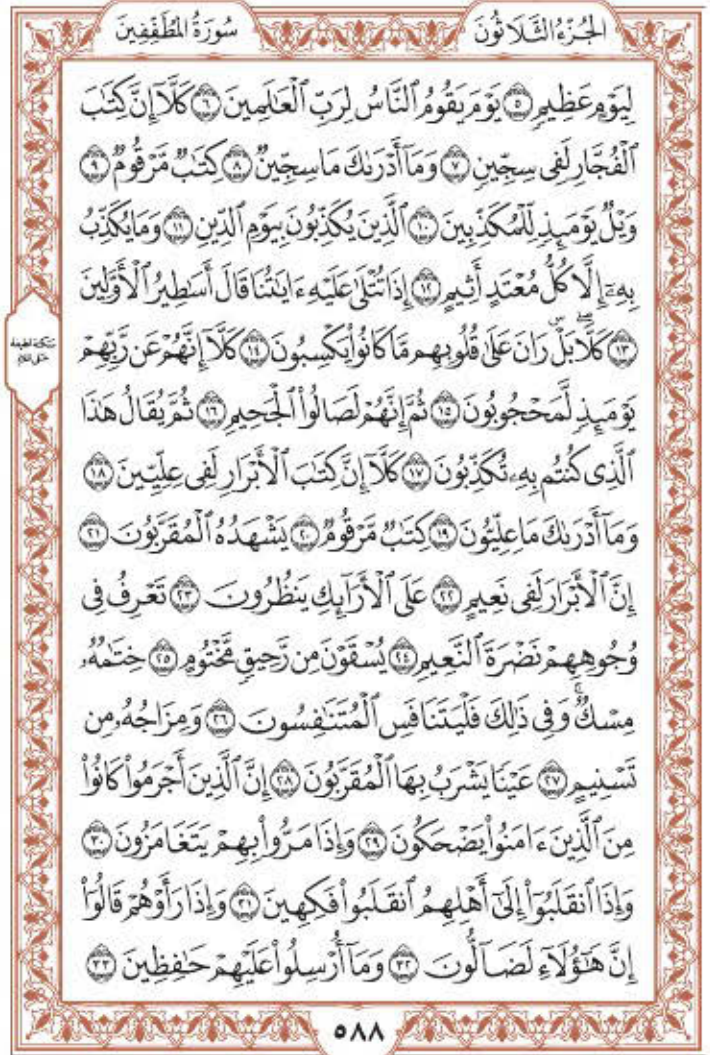 الجُزْءُ الثَّلَاثُونَ
سُورَةُ المُطَفِّفِينَ
لِيَوْمٍ عَظِيمٖ ٥ يَوۡمَ يَقُومُ ٱلنَّاسُ لِرَبِّ ٱلۡعَٰلَمِينَ ٦ كَلَّآ إِنَّ كِتَٰبَ
ٱلۡفُجَّارِ لَفِي سِجِّينٖ ٧ وَمَآ أَدۡرَىٰكَ مَا سِجِّينٞ ٨ كِتَٰبٞ مَّرۡقُومٞ ٩
وَيۡلٞ يَوۡمَئِذٖ لِّلۡمُكَذِّبِينَ ١٠ ٱلَّذِينَ يُكَذِّبُونَ بِيَوۡمِ ٱلدِّينِ ١١ وَمَا يُكَذِّبُ
بِهِۦٓ إِلَّا كُلُّ مُعۡتَدٍ أَثِيمٍ ١٢ إِذَا تُتۡلَىٰ عَلَيۡهِ ءَايَٰتُنَا قَالَ أَسَٰطِيرُ ٱلۡأَوَّلِينَ
١٣ كَلَّاۖ بَلۡۜ رَانَ عَلَىٰ قُلُوبِهِم مَّا كَانُواْ يَكۡسِبُونَ ١٤ كَلَّآ إِنَّهُمۡ عَن رَّبِّهِمۡ
يَوۡمَئِذٖ لَّمَحۡجُوبُونَ ١٥ ثُمَّ إِنَّهُمۡ لَصَالُواْ ٱلۡجَحِيمِ ١٦ ثُمَّ يُقَالُ هَٰذَا
ٱلَّذِي كُنتُم بِهِۦ تُكَذِّبُونَ ١٧ كَلَّآ إِنَّ كِتَٰبَ ٱلۡأَبۡرَارِ لَفِي عِلِّيِّينَ ١٨
وَمَآ أَدۡرَىٰكَ مَا عِلِّيُّونَ ١٩ كِتَٰبٞ مَّرۡقُومٞ ٢٠ يَشۡهَدُهُ ٱلۡمُقَرَّبُونَ ٢١
إِنَّ ٱلۡأَبۡرَارَ لَفِي نَعِيمٍ ٢٢ عَلَى ٱلۡأَرَآئِكِ يَنظُرُونَ ٢٣ تَعۡرِفُ فِي
وُجُوهِهِمۡ نَضۡرَةَ ٱلنَّعِيمِ ٢٤ يُسۡقَوۡنَ مِن رَّحِيقٖ مَّخۡتُومٍ ٢٥ خِتَٰمُهُۥ
مِسۡكٞۚ وَفِي ذَٰلِكَ فَلۡيَتَنَافَسِ ٱلۡمُتَنَٰفِسُونَ ٢٦ وَمِزَاجُهُۥ مِن
تَسۡنِيمٍ ٢٧ عَيۡنٗا يَشۡرَبُ بِهَا ٱلۡمُقَرَّبُونَ ٢٨ إِنَّ ٱلَّذِينَ أَجۡرَمُواْ كَانُواْ
مِنَ ٱلَّذِينَ ءَامَنُواْ يَضۡحَكُونَ ٢٩ وَإِذَا مَرُّواْ بِهِمۡ يَتَغَامَزُونَ ٣٠
وَإِذَا ٱنقَلَبُوٓاْ إِلَىٰٓ أَهۡلِهِمُ ٱنقَلَبُواْ فَكِهِينَ ٣١ وَإِذَا رَأَوۡهُمۡ قَالُوٓاْ
إِنَّ هَٰٓؤُلَآءِ لَضَآلُّونَ ٣٢ وَمَآ أُرۡسِلُواْ عَلَيۡهِمۡ حَٰفِظِينَ ٣٣
٥٨٨